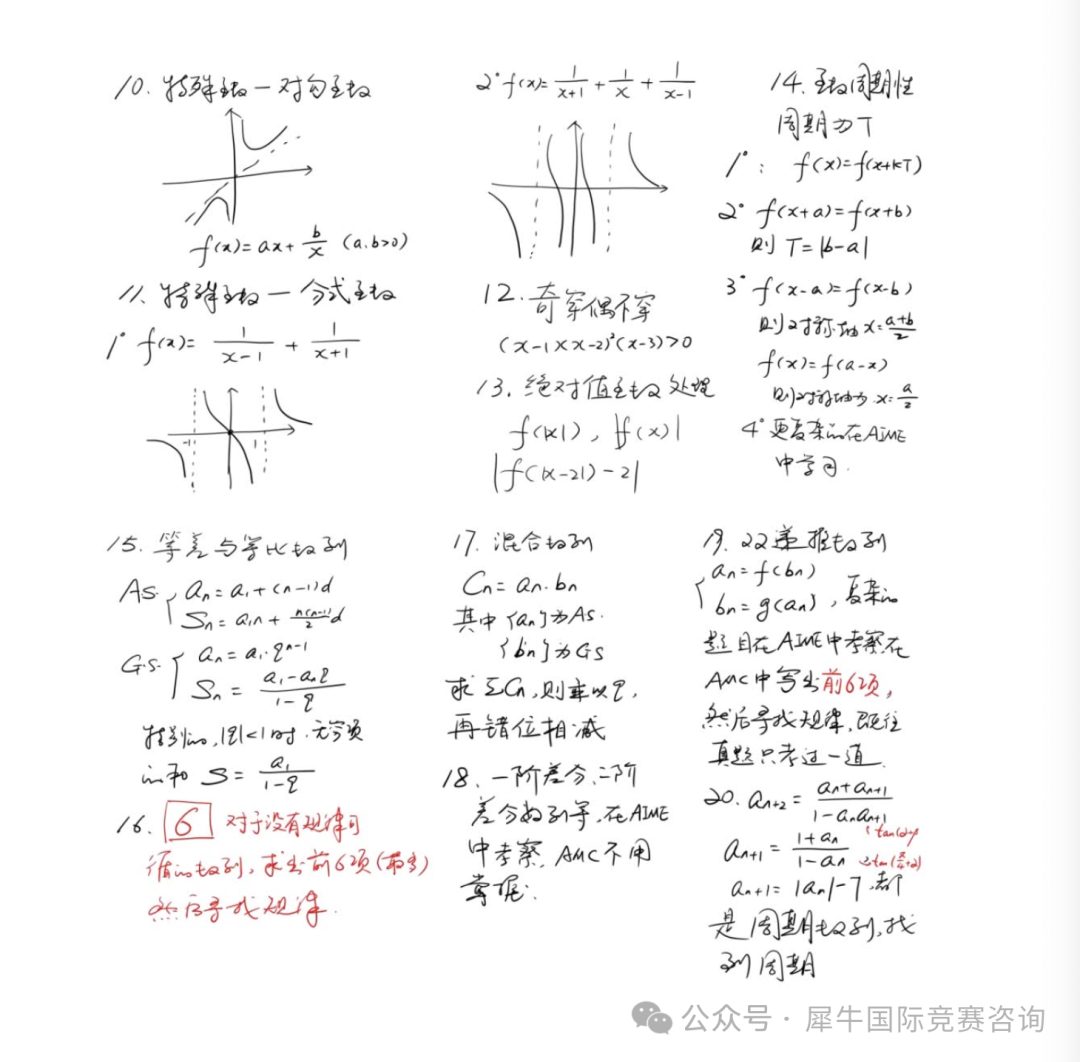 10. 特殊函数一对勾函数
f(x)=ax+b/x (a.b>0)
11. 特殊函数一分式函数
1° f(x)= 1/(x-1) + 1/(x+1)
-1
1
2° f(x)= 1/(x+1) + 1/x + 1/(x-1)
12. 奇穿偶不穿
(x-1)(x-2)²(x-3)>0
13. 绝对值函数处理
f(|x|), |f(x)|
|f(|x-2|)-2|
14. 函数周期性
周期为T
1°: f(x)=f(x+kT)
2° f(x+a)=f(x+b)
则 T=|b-a|
3° f(x-a)=f(x-b)
则对称轴 x=(a+b)/2
f(x)=f(a-x)
则对称轴为 x=a/2
4° 更复杂的在AIME
中学习.
15. 等差与等比数列
AS. { an=a1+(n-1)d
Sn=a1n+n(n-1)/2 d
G.S. { an=a1·q^(n-1)
Sn=(a1-anq)/(1-q)
特别的, |q|<1时.无穷项
的和 S=a1/(1-q)
16. 6 对于没有规律可
循的数列,求出前6项(最多)
然后寻找规律.
17. 混合数列
Cn=an.bn
其中{an}为AS.
{bn}为GS
求ΣCn,则乘以q,
再错位相减
18. 一阶差分、二阶
差分数列等,在AIME
中考察, AMC不用
掌握.
19. 22递推数列
{ an=f(bn)
bn=g(an) ,复杂的
题目在AIME中考察,在
AMC中写出前6项,
然后寻找规律,既往
真题只考过一道.
20. an+2=(an+an+1)/(1-anan+1)
an+1=(1+an)/(1-an)
an+1=|an|-7,都
是周期数列,找
到周期
公众号·犀牛国际竞赛咨询